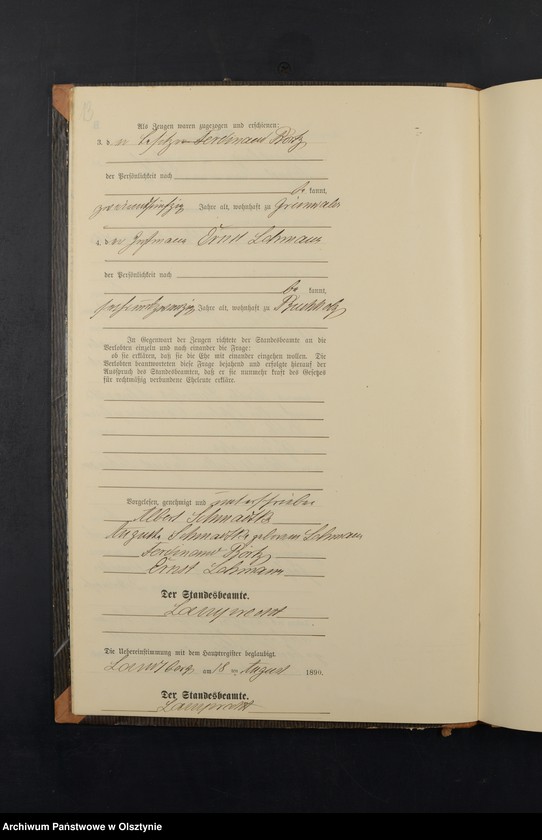 Als Zeugen waren zugezogen und erschienen:
3. der Besitzer Ferdinand
der Persönlichkeit nach
be kannt,
zweiundfünfzig Jahre alt, wohnhaft zu Grünwalde
4. der Ernst Lehmann
der Persönlichkeit nach
be kannt,
sechsundzwanzig Jahre alt, wohnhaft zu Buchholz
In Gegenwart der Zeugen richtete der Standesbeamte an die
Verlobten einzeln und nach einander die Frage:
ob sie erklären, daß sie die Ehe mit einander eingehen wollen. Die
Verlobten beantworteten diese Frage bejahend und erfolgte hierauf der
Ausspruch des Standesbeamten, daß er sie nunmehr kraft des Gesetzes
für rechtmäßig verbundene Eheleute erkläre.
Vorgelesen, genehmigt und unterschrieben
Albert
Auguste geborene Lehmann
Ferdinand
Ernst Lehmann
Der Standesbeamte.
Lamprecht
Die Uebereinstimmung mit dem Hauptregister beglaubigt.
Landsberg am 18 ten August 1890.
Der Standesbeamte.
Lamprecht
Archiwum Państwowe w Olsztynie